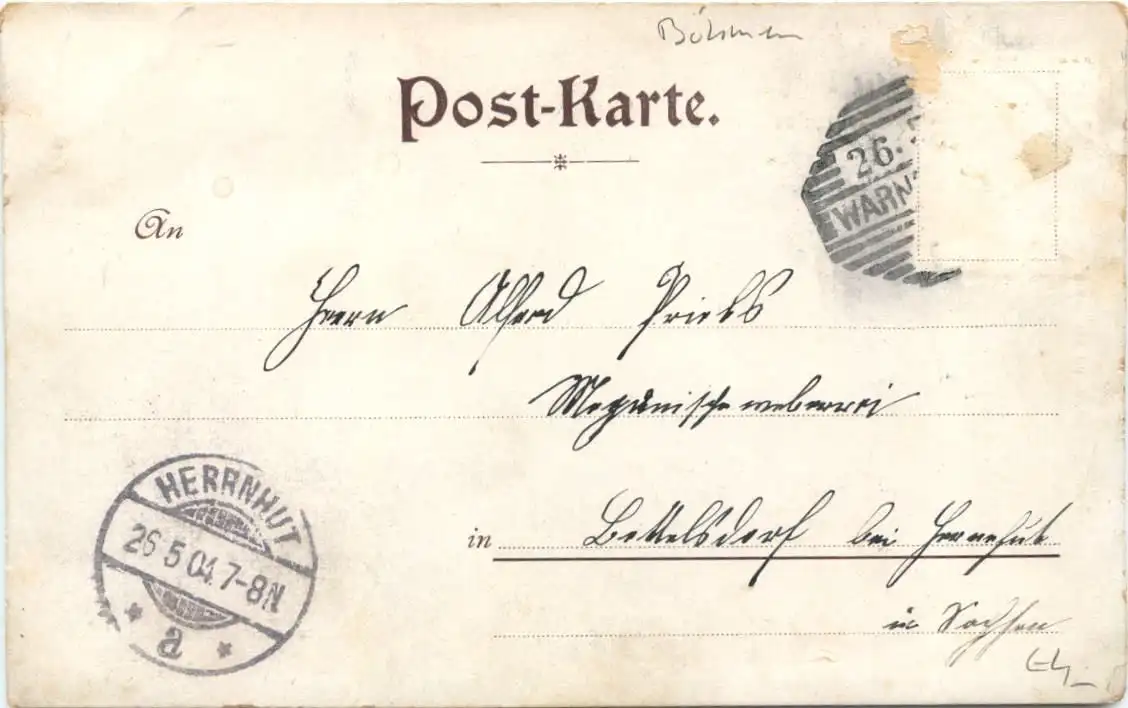 Böhmen
Post-Karte.
26.
WARNS
An
Herrn Alfred Priebs
Mechanische weberei
HERRNHUT
26 5 04. 7-8N
a
in
bei Herrnhut
in Sachsen